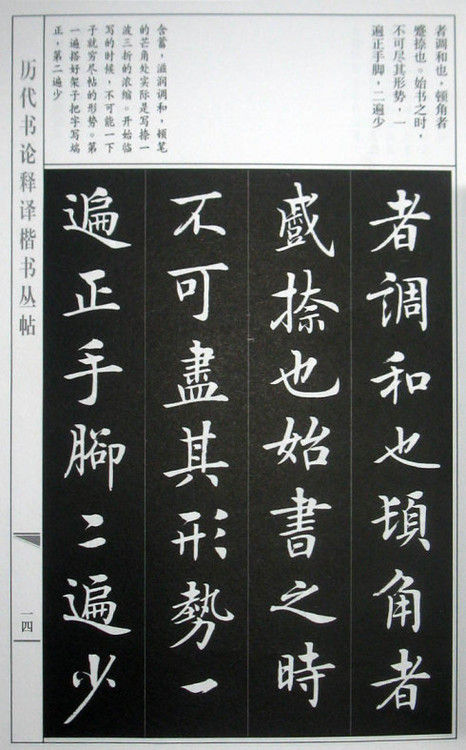 者调和也。顿角者
蹙捺也。始书之时，
不可尽其形势，一
遍正手脚，二遍少
含蓄，滋润调和，顿笔
的芒角处实际是写捺一
波三折的浓缩。开始临
写的时候，不可能一下
子就穷尽帖的形势。第
一遍搭好架子把字写端
正，第二遍少
者調和也頓角者
蹙捺也始書之時
不可盡其形勢一
遍正手腳二遍少
历代书论释译楷书丛帖
一四